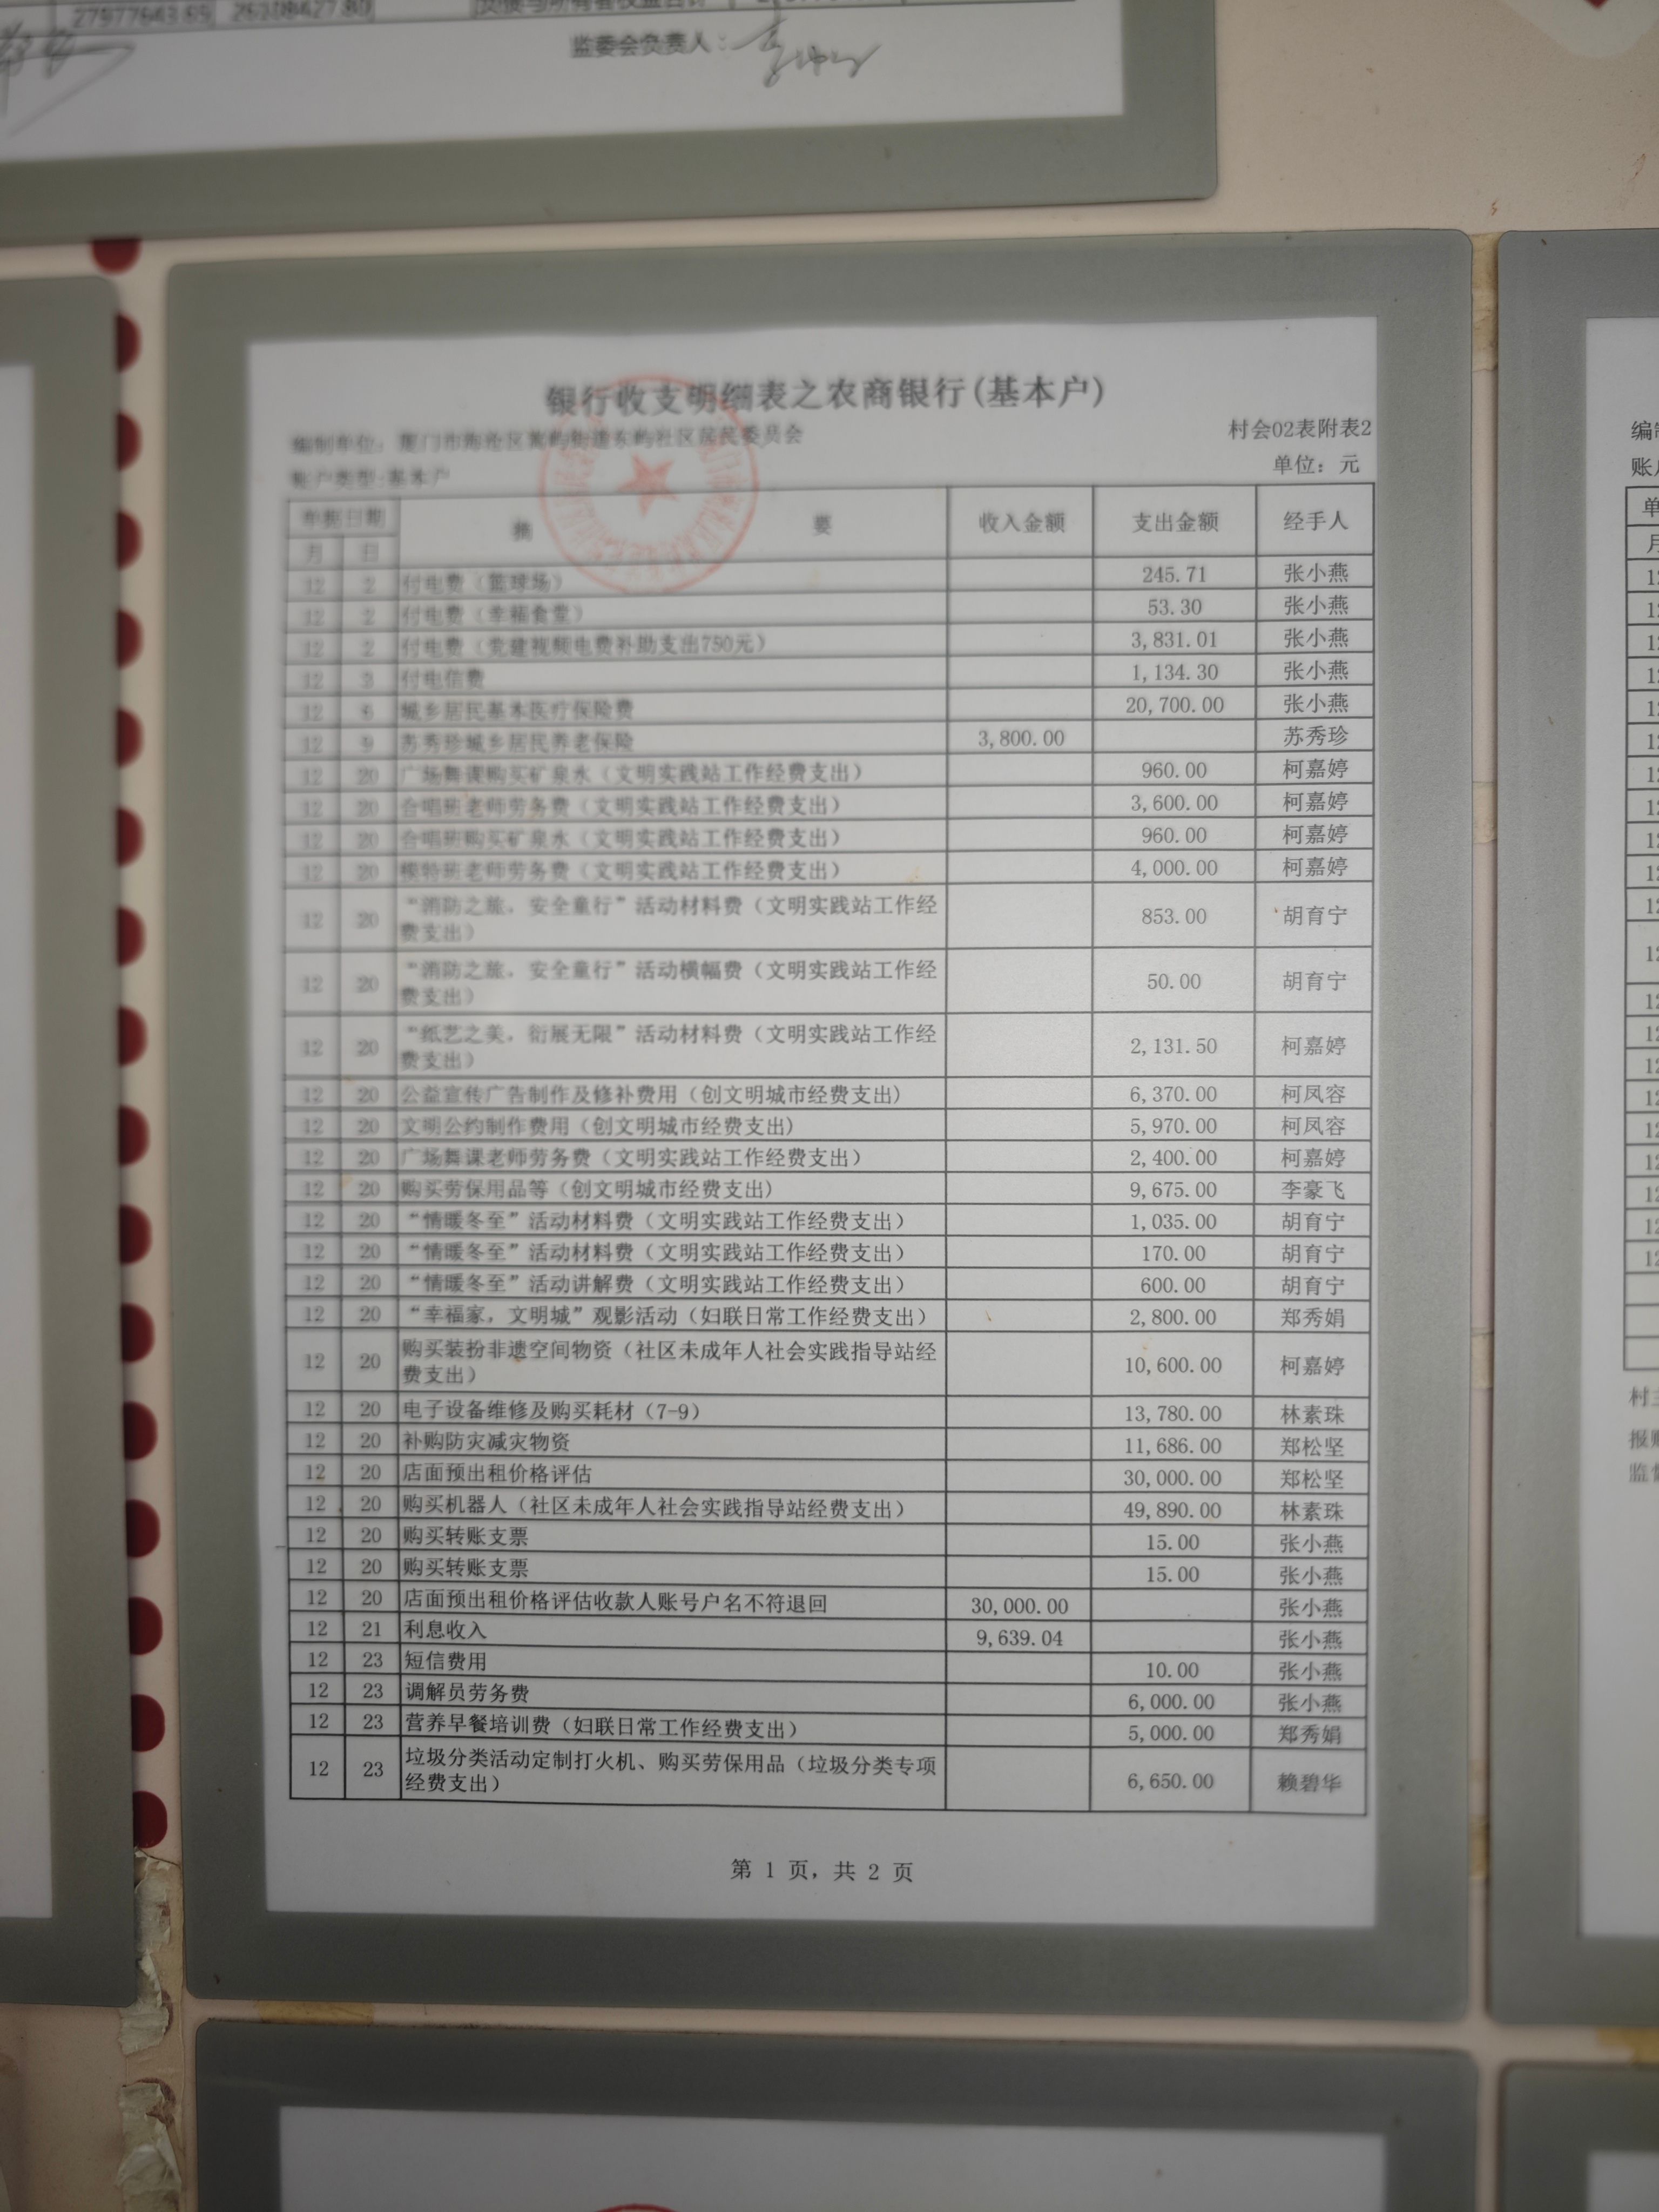 27977643.69 26108427.80
监委会负责人：
银行收支明细表之农商银行(基本户)
村会02表附表2
编制单位：厦门市海沧区嵩屿街道东屿社区居民委员会
单位：元
账户类型:基本户
单据日期 摘 要 收入金额 支出金额 经手人
月 日
12 2 付电费（篮球场） 245.71 张小燕
12 2 付电费（幸福食堂） 53.30 张小燕
12 2 付电费（党建视频电费补助支出750元） 3,831.01 张小燕
12 3 付电信费 1,134.30 张小燕
12 6 城乡居民基本医疗保险费 20,700.00 张小燕
12 9 苏秀珍城乡居民养老保险 3,800.00 苏秀珍
12 20 广场舞课购买矿泉水（文明实践站工作经费支出） 960.00 柯嘉婷
12 20 合唱班老师劳务费（文明实践站工作经费支出） 3,600.00 柯嘉婷
12 20 合唱班购买矿泉水（文明实践站工作经费支出） 960.00 柯嘉婷
12 20 模特班老师劳务费（文明实践站工作经费支出） 4,000.00 柯嘉婷
12 20 “消防之旅，安全童行”活动材料费（文明实践站工作经 853.00 胡育宁
费支出）
12 20 “消防之旅，安全童行”活动横幅费（文明实践站工作经 50.00 胡育宁
费支出）
12 20 “纸艺之美，衍展无限”活动材料费（文明实践站工作经 2,131.50 柯嘉婷
费支出）
12 20 公益宣传广告制作及修补费用（创文明城市经费支出) 6,370.00 柯凤容
12 20 文明公约制作费用（创文明城市经费支出) 5,970.00 柯凤容
12 20 广场舞课老师劳务费（文明实践站工作经费支出） 2,400.00 柯嘉婷
12 20 购买劳保用品等（创文明城市经费支出) 9,675.00 李豪飞
12 20 “情暖冬至”活动材料费（文明实践站工作经费支出） 1,035.00 胡育宁
12 20 “情暖冬至”活动材料费（文明实践站工作经费支出） 170.00 胡育宁
12 20 “情暖冬至”活动讲解费（文明实践站工作经费支出） 600.00 胡育宁
12 20 “幸福家，文明城”观影活动（妇联日常工作经费支出） 2,800.00 郑秀娟
12 20 购买装扮非遗空间物资（社区未成年人社会实践指导站经 10,600.00 柯嘉婷
费支出）
12 20 电子设备维修及购买耗材（7-9） 13,780.00 林素珠
12 20 补购防灾减灾物资 11,686.00 郑松坚
12 20 店面预出租价格评估 30,000.00 郑松坚
12 20 购买机器人（社区未成年人社会实践指导站经费支出） 49,890.00 林素珠
12 20 购买转账支票 15.00 张小燕
12 20 购买转账支票 15.00 张小燕
12 20 店面预出租价格评估收款人账号户名不符退回 30,000.00 张小燕
12 21 利息收入 9,639.04 张小燕
12 23 短信费用 10.00 张小燕
12 23 调解员劳务费 6,000.00 张小燕
12 23 营养早餐培训费（妇联日常工作经费支出） 5,000.00 郑秀娟
12 23 垃圾分类活动定制打火机、购买劳保用品（垃圾分类专项 6,650.00 赖碧华
经费支出）
第 1 页，共 2 页